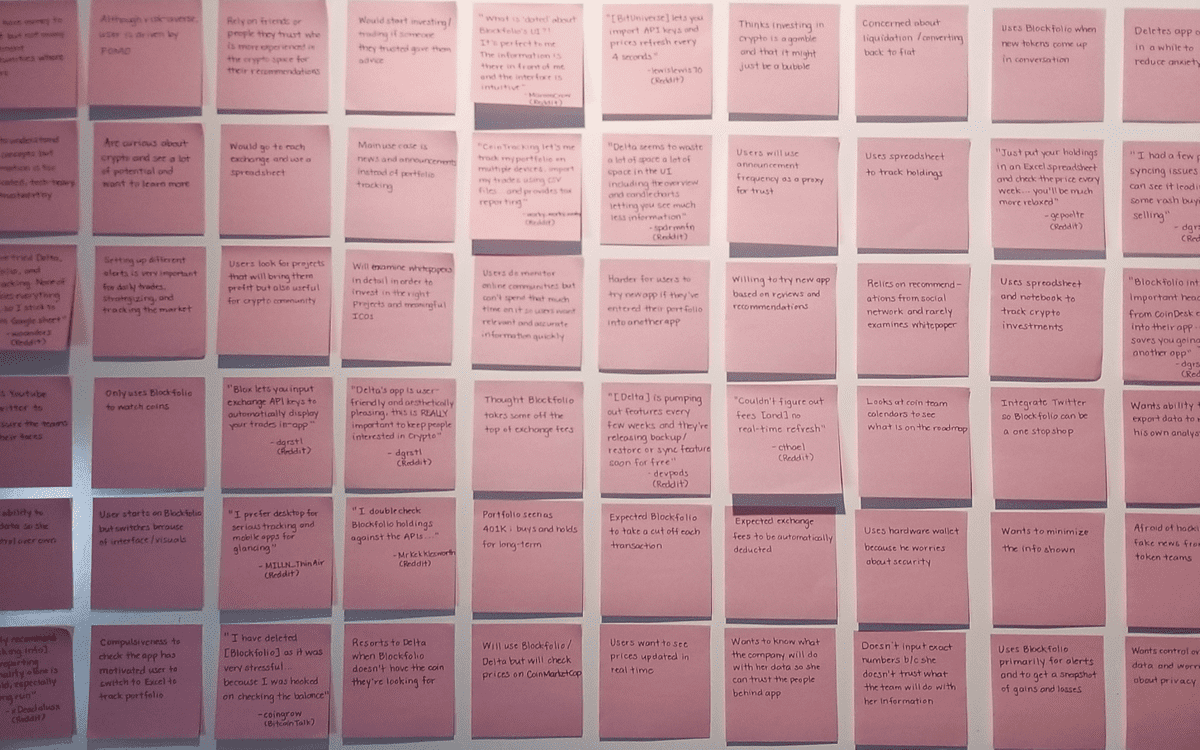 Although risk-averse,
user is driven by
FOMO
Rely on friends or
people they trust who
is more experienced in
the crypto space for
their recommendations
Would start investing/
trading if someone
they trusted gave them
advice
"What is 'dated' about
Blockfolio's UI?!
It's perfect to me
The information is
there in front of me
and the interface is
intuitive"
(Reddit)
"[BitUniverse] lets you
import API keys and
prices refresh every
4 seconds"
-lewislewis70
(Reddit)
Thinks investing in
crypto is a gamble
and that it might
just be a bubble
Concerned about
liquidation /converting
back to fiat
Uses Blockfolio when
new tokens come up
in conversation
Deletes app o
in a while to
reduce anxiety
Are curious about
crypto and see a lot
of potential and
want to learn more
Would go to each
exchange and use a
spreadsheet
Main use case is
news and announcements
instead of portfolio
tracking
"CoinTracking let's me
track my portfolio on
multiple devices, import
my trades using CSV
files... and provides tax
reporting"
(Reddit)
"Delta seems to waste
a lot of space a lot of
space in the UI
including the overview
and candle charts
letting you see much
less information"
-spdrmntn
(Reddit)
Users will use
announcement
frequency as a proxy
for trust
Uses spreadsheet
to track holdings
"Just put your holdings
in an Excel spreadsheet
and check the price every
week... you'll be much
more relaxed"
-gepoelte
(Reddit)
"I had a few
syncing issues
can see it leadi
some rash buy
selling"
- dgrs
(Red
tried Delta,
folio, and
acking. None of
es everything
so I stick to
Google sheet"
(Reddit)
Setting up different
alerts is very important
for daily trades,
strategizing, and
tracking the market
Users look for projects
that will bring them
profit but also useful
for crypto community
Will examine whitepapers
in detail in order to
invest in the right
projects and meaningful
ICOs
Users do monitor
online communities but
can't spend that much
time on it so users want
relevant and accurate
information quickly
Harder for users to
try new app if they've
entered their portfolio
into another app
Willing to try new app
based on reviews and
recommendations
Relies on recommend-
ations from social
network and rarely
examines whitepaper
Uses spreadsheet
and notebook to
track crypto
investments
"Blockfolio int
important head
from CoinDesk
into their app
saves you going
another app"
-dgrs
(Red
Youtube
witter to
sure the teams
their faces
Only uses Blockfolio
to watch coins
"Blox lets you input
exchange API keys to
automatically display
your trades in-app"
-dgrstl
(Reddit)
"Delta's app is user-
friendly and aesthetically
pleasing, this is REALLY
important to keep people
interested in Crypto"
- dgrstl
(Reddit)
Thought Blockfolio
takes some off the
top of exchange fees
"[Delta] is pumping
out features every
few weeks and they're
releasing backup/
restore or sync feature
soon for free"
- devpods
(Reddit)
"Couldn't figure out
fees [and] no
real-time refresh"
-cthoel
(Reddit)
Looks at coin team
calendars to see
what is on the roadmap
Integrate Twitter
so Blockfolio can be
a one stop shop
Wants ability
export data to
his own analys
ability to
data so she
control over own
User starts on Blockfolio
but switches because
of interface/visuals
"I prefer desktop for
serious tracking and
mobile apps for
glancing"
- MILLN_ThinAir
(Reddit)
"I double check
Blockfolio holdings
against the APIs..."
(Reddit)
Portfolio seen as
401K; buys and holds
for long-term
Expected Blockfolio
to take a cut off each
transaction
Expected exchange
fees to be automatically
deducted
Uses hardware wallet
because he worries
about security
Wants to minimize
the info shown
Afraid of hack
fake news from
token teams
(Reddit)
Compulsiveness to
check the app has
motivated user to
switch to Excel to
track portfolio
"I have deleted
[Blockfolio] as it was
very stressful...
because I was hooked
on checking the balance"
-coingrow
(BitcoinTalk)
Resorts to Delta
when Blockfolio
doesn't have the coin
they're looking for
Will use Blockfolio/
Delta but will check
prices on CoinMarketCap
Users want to see
prices updated in
real time
Wants to know what
the company will do
with her data so she
can trust the people
behind app
Doesn't input exact
numbers b/c she
doesn't trust what
the team will do with
her information
Uses Blockfolio
primarily for alerts
and to get a snapshot
of gains and losses
Wants control ov
data and worr
about privacy